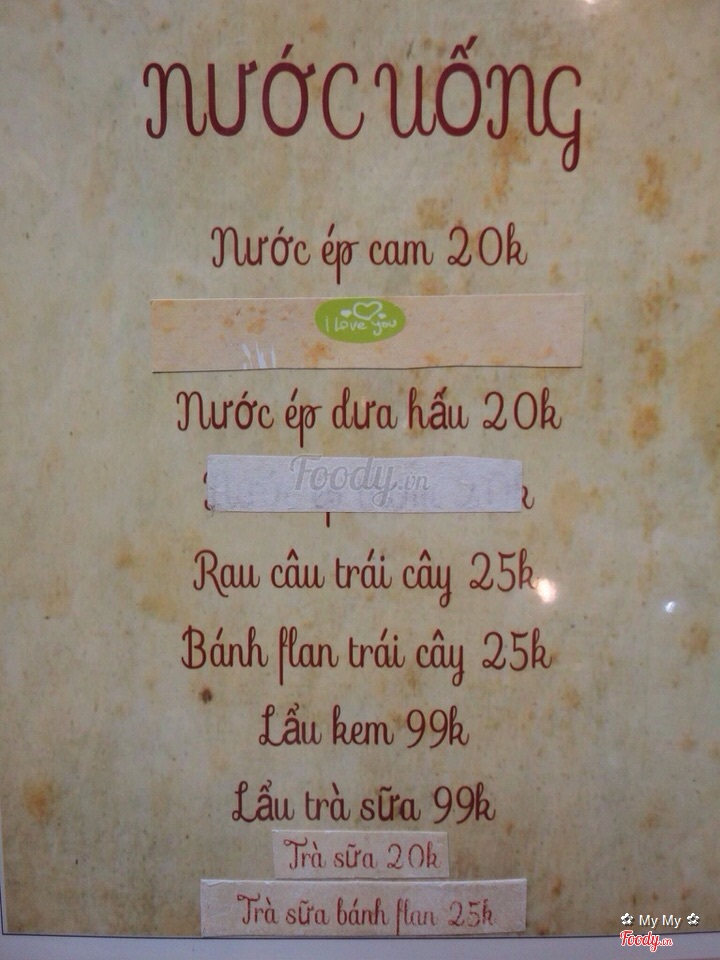 NƯỚC UỐNG
Nước ép cam 20k
I Love you
Nước ép dưa hấu 20k
Foody.vn
Rau câu trái cây 25k
Bánh flan trái cây 25k
Lẩu kem 99k
Lẩu trà sữa 99k
Trà sữa 20k
Trà sữa bánh flan 25k
My My
Foody.vn